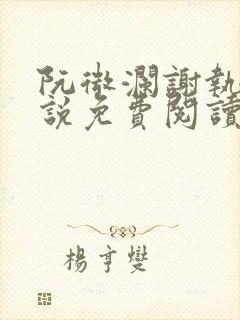 阮微瀾謝執
說免費閱讀
楊亨燮